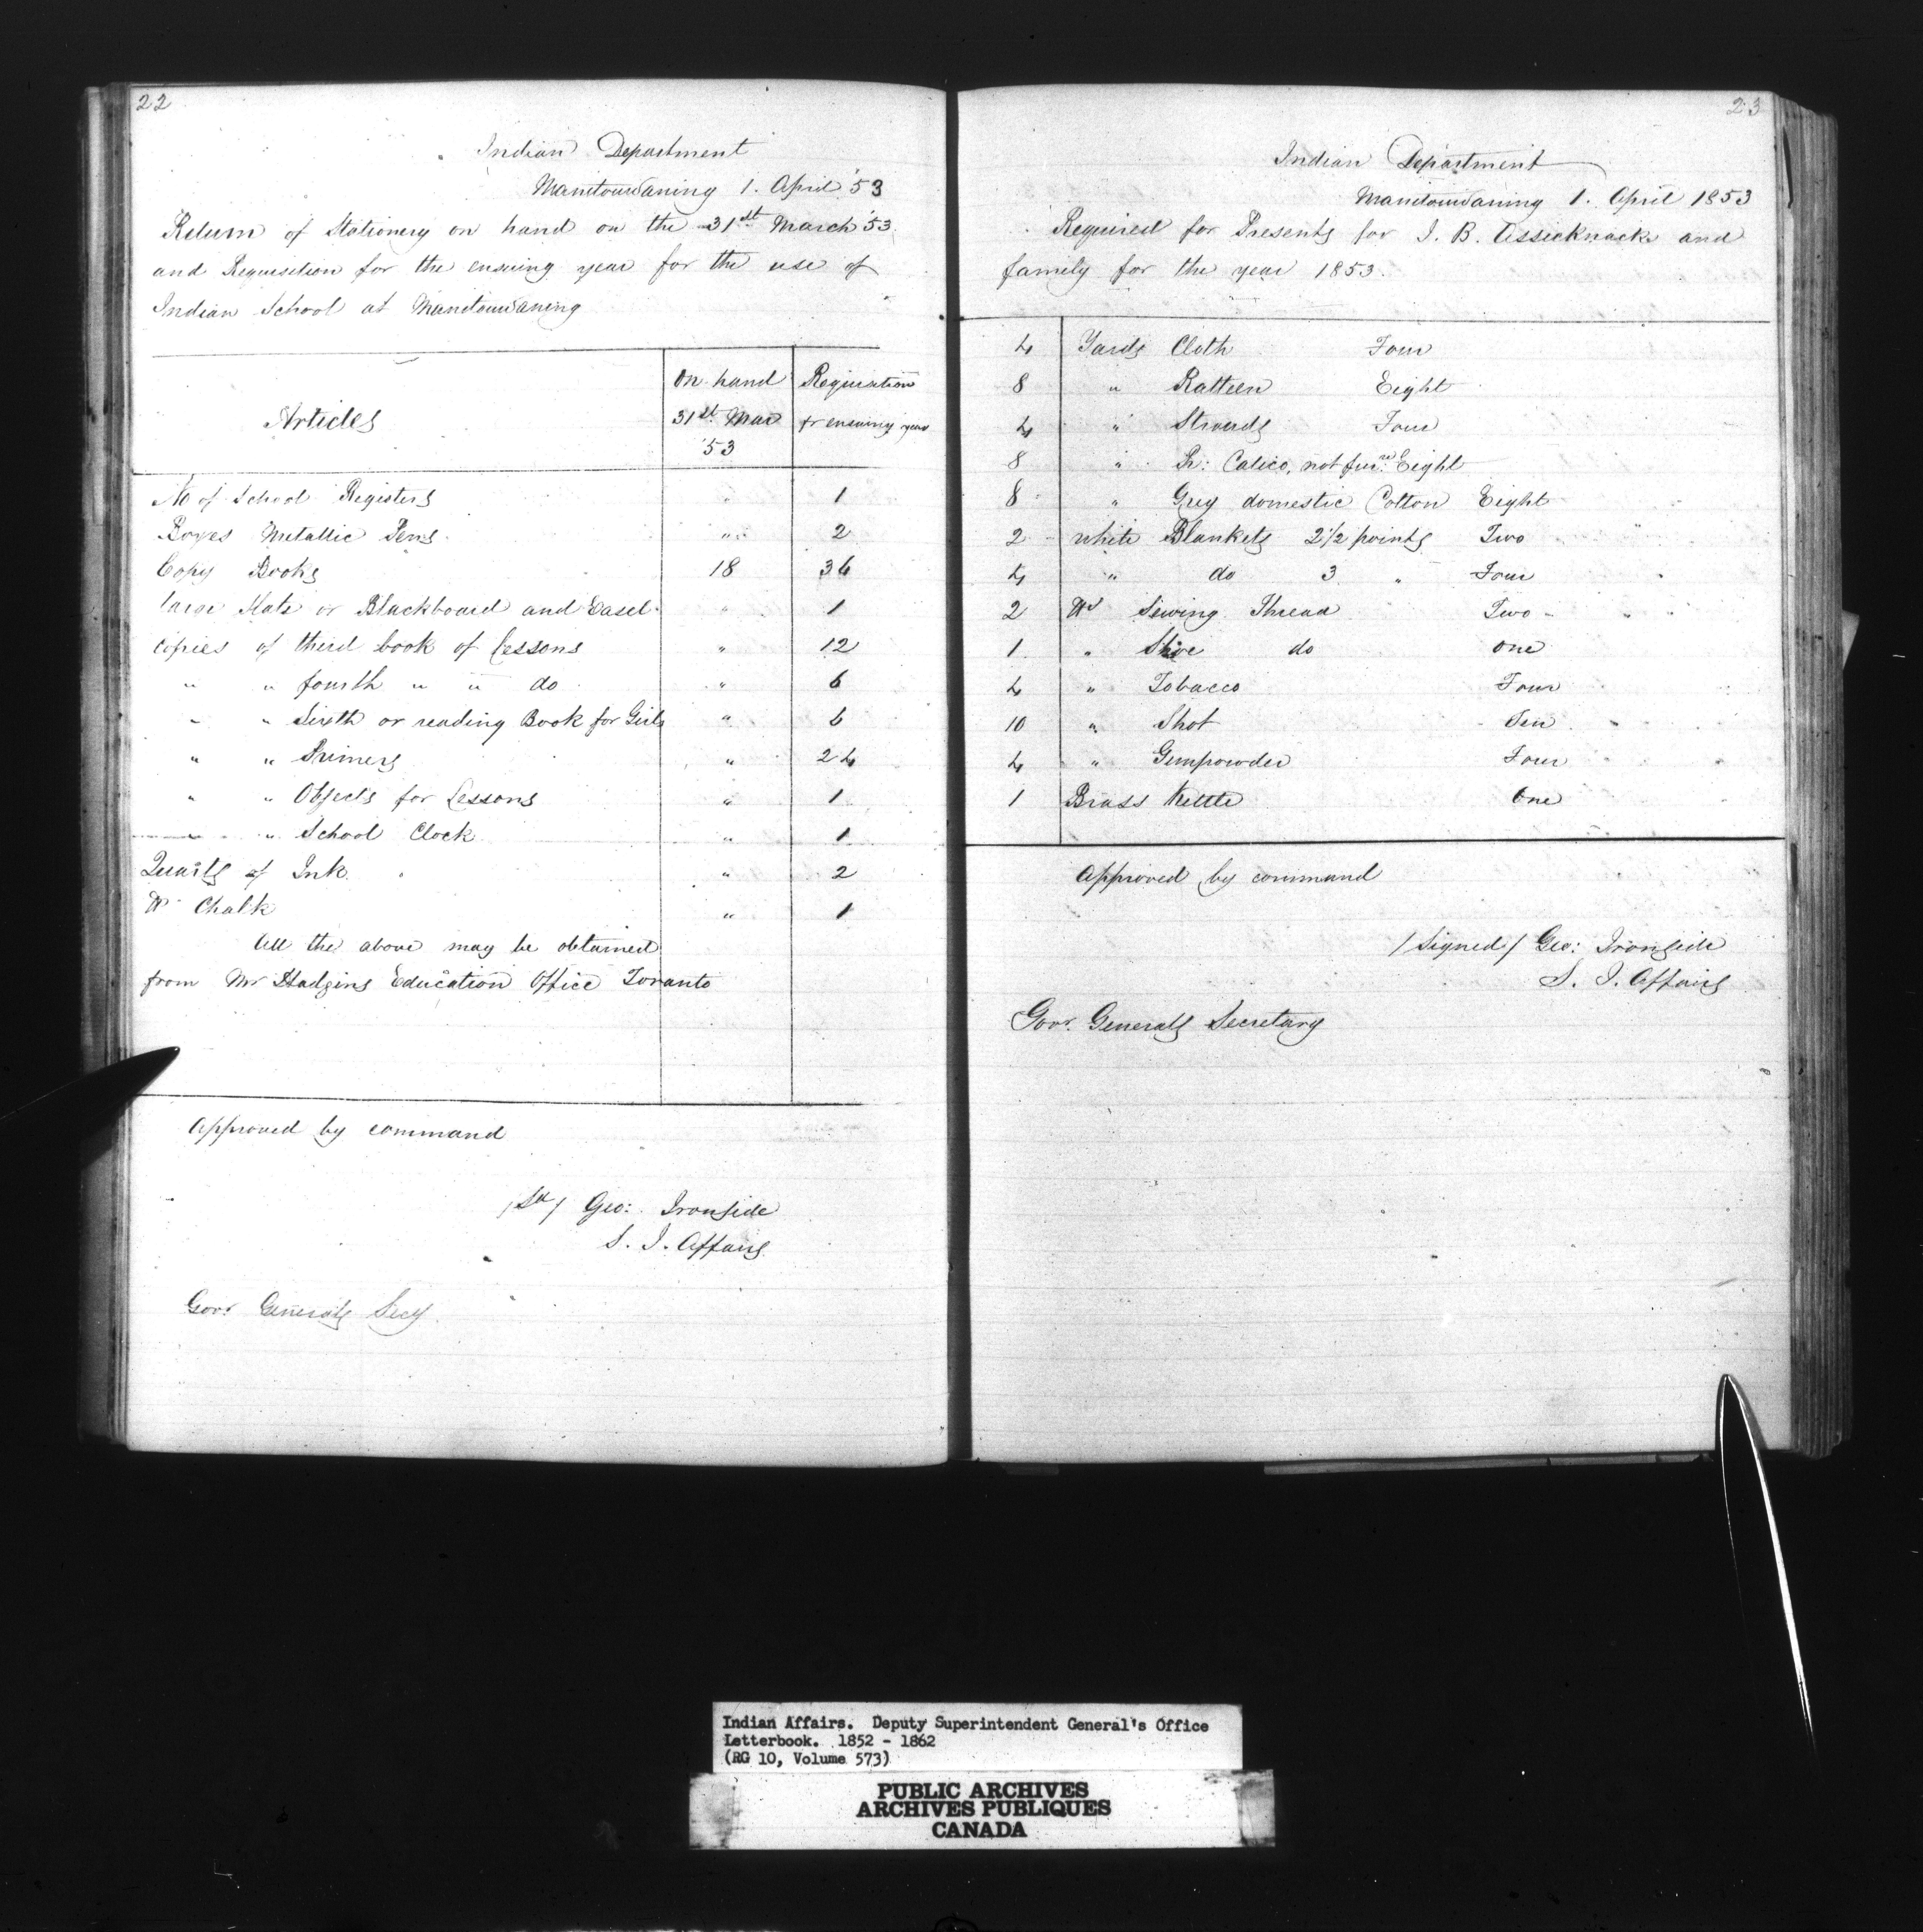 22
Indian Department
Manitouwaning 1. April '53
Return of Stationery on hand on the 31st March '53.
and Requisition for the ensuing year for the use of
Indian School at Manitouwaning
Articles | On hand 31st Mar '53 | Requisition fr ensuing year
No of School Registers " 1
Boxes Metallic Pens " 2
Copy Books 18 36
large Slate or Blackboard and Easel " 1
copies of third book of Lessons " 12
" " fourth " " do " 6
" " Sixth or reading Book for Girls " 6
" " Primers " 24
" " Objects for Lessons " 1
" School Clock " 1
Quarts of Ink " 2
lb Chalk " 1
All the above may be obtained
from Mr Hodgins Education Office Toronto
Approved by command
/Sd/ Geo: Ironside
S. I. Affairs
Govr Generals Secy
23
Indian Department
Manitouwaning 1. April 1853
Required for Presents for J. B. Assicknack and
family for the year 1853.
4 Yards Cloth Four
8 " Ratteen Eight
4 " Strouds Four
8 " Pr: Calico, not furre Eight
8 " Grey domestic Cotton Eight
2 white Blankets 2 1/2 points Two
4 " do 3 " Four
2 lbs Sewing Thread Two
1 " Shoe do One
4 " Tobacco Four
10 " Shot Ten
4 " Gunpowder Four
1 Brass Kettle One
Approved by command
/Signed/ Geo: Ironside
S. I. Affairs
Govr. Generals Secretary
Indian Affairs. Deputy Superintendent General's Office
Letterbook. 1852 - 1862
(RG 10, Volume 573)
PUBLIC ARCHIVES
ARCHIVES PUBLIQUES
CANADA